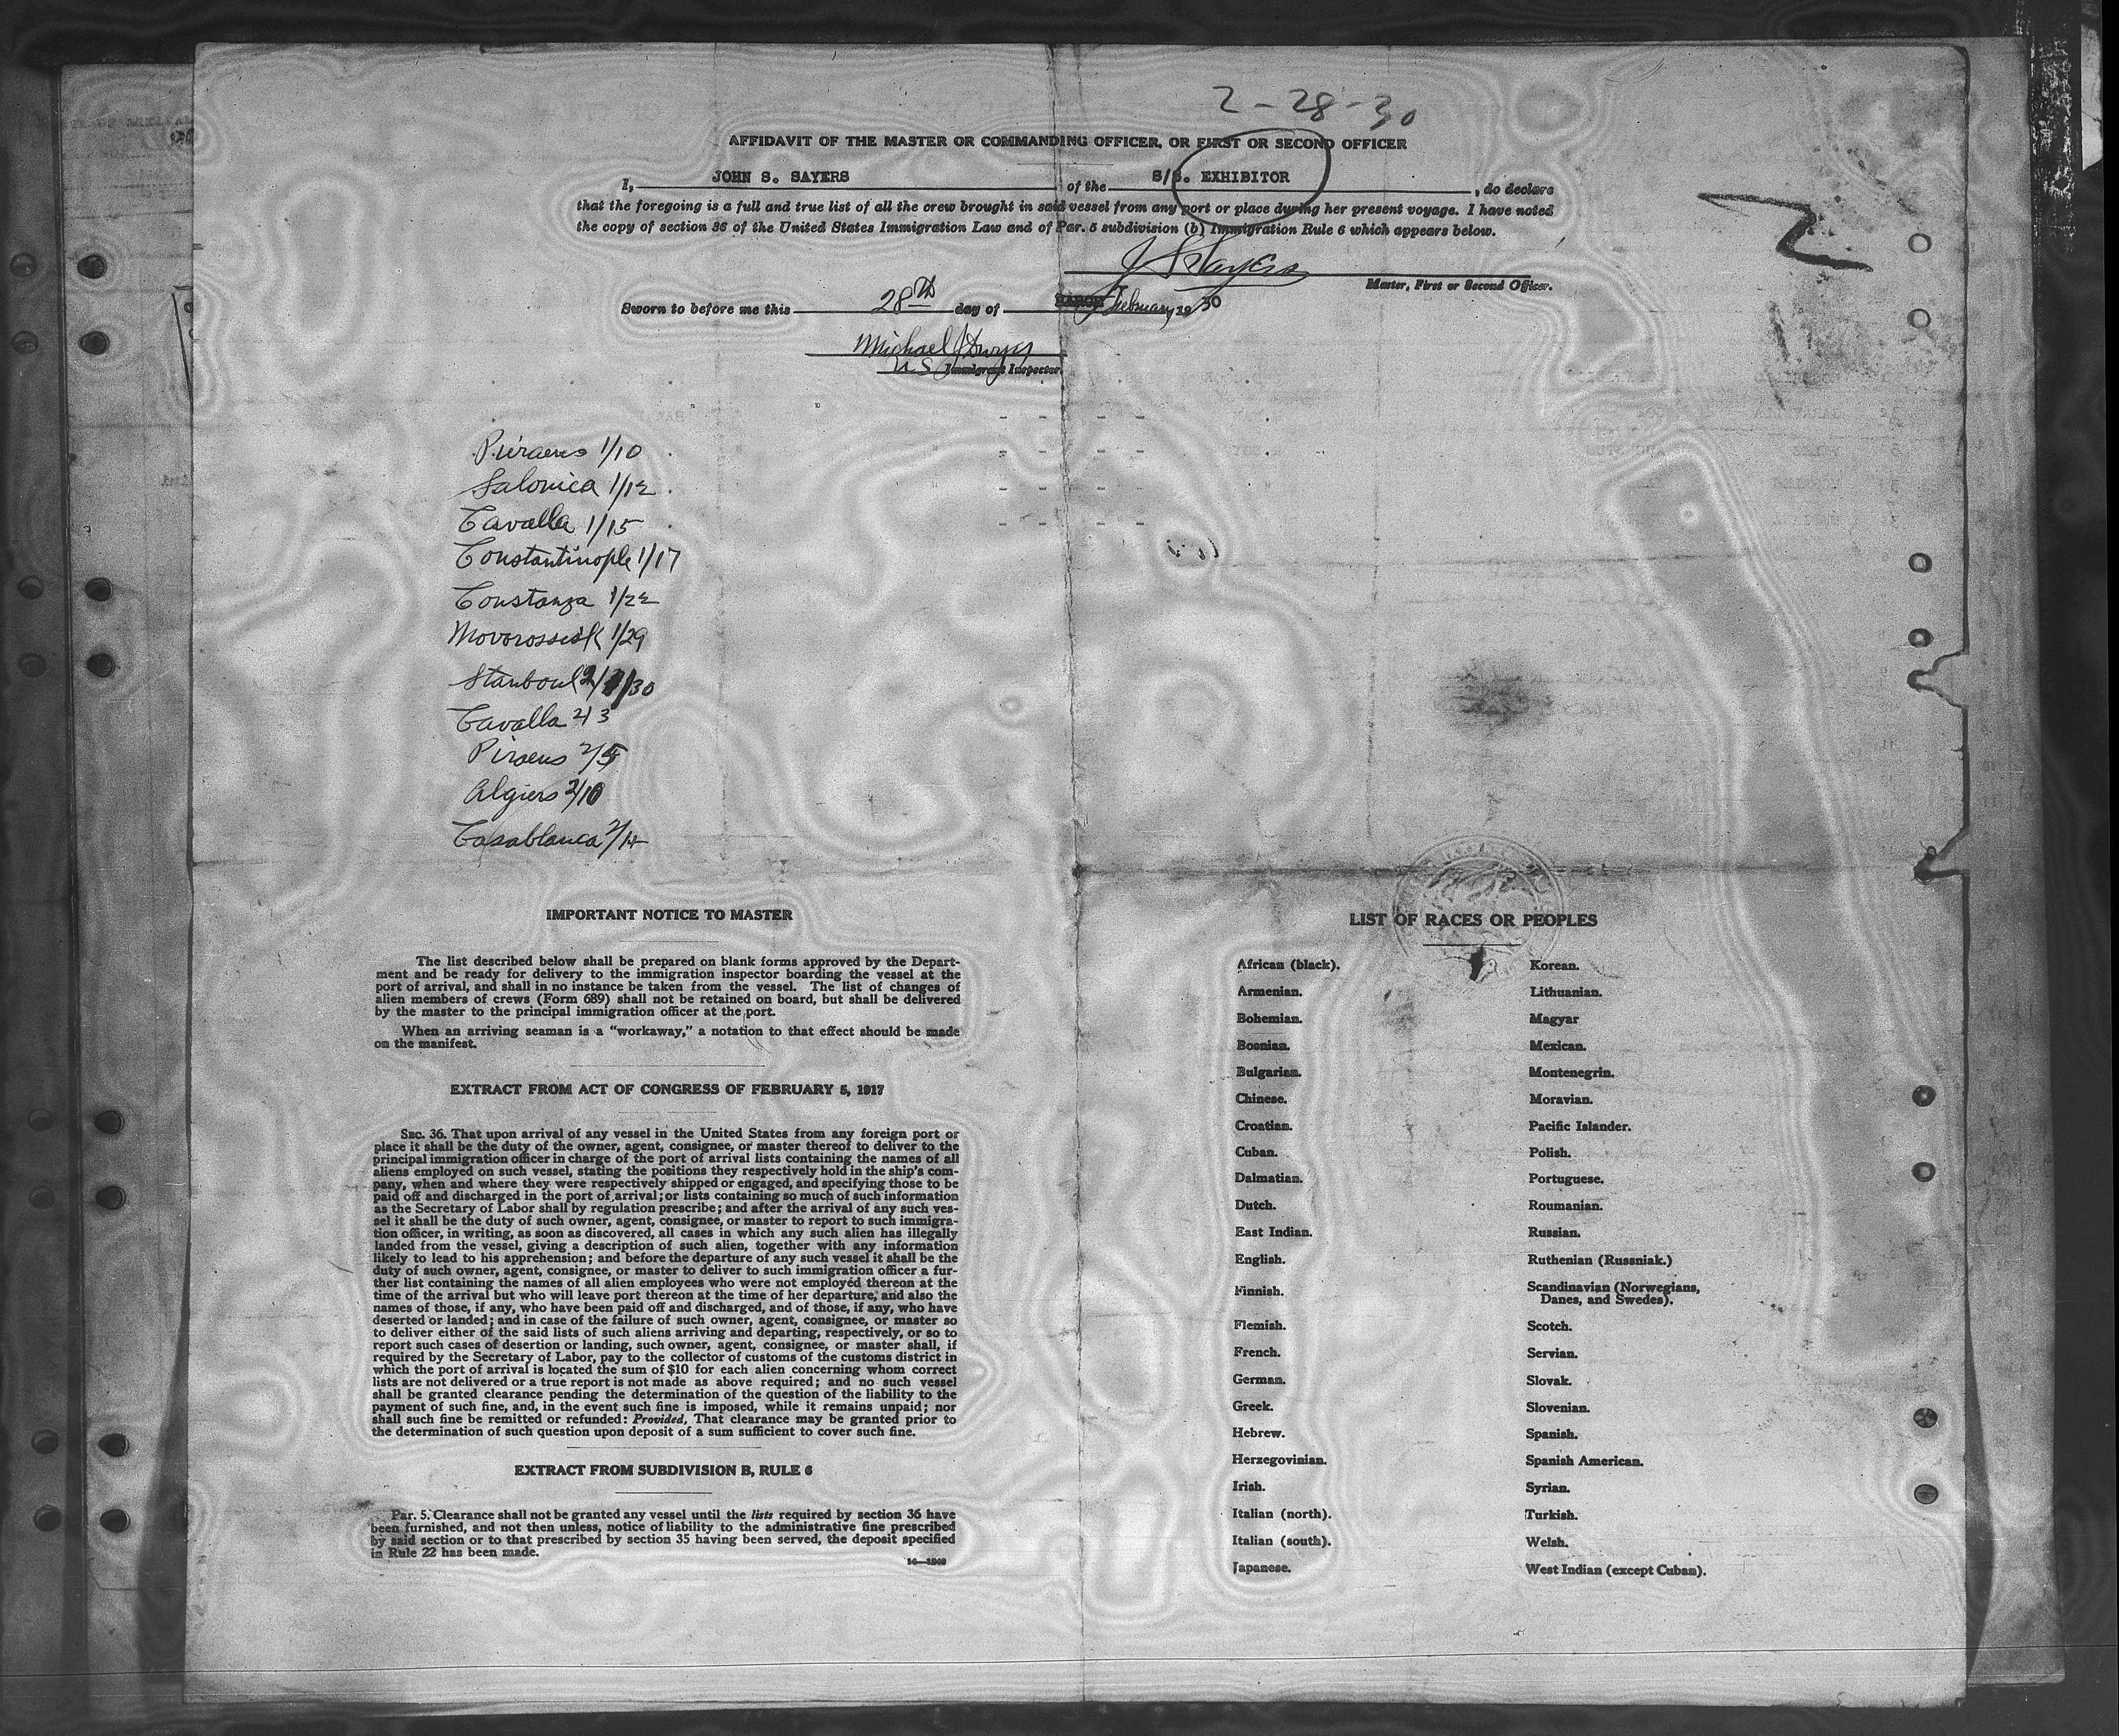 2-28-30
AFFIDAVIT OF THE MASTER OR COMMANDING OFFICER, OR FIRST OR SECOND OFFICER
I, JOHN S. SAYERS of the S/S. EXHIBITOR, do declare
that the foregoing is a full and true list of all the crew brought in said vessel from any port or place during her present voyage. I have noted
the copy of section 36 of the United States Immigration Law and of Par. 5 subdivision (b) Immigration Rule 6 which appears below.
J S Sayers
Master, First or Second Officer.
Sworn to before me this 28th day of MARCH February 1930
Michael J Dwyer
U S Immigrant Inspector.
Piraeus 1/10
Salonica 1/12
Cavalla 1/15
Constantinople 1/17
Constanza 1/22
Novorossisk 1/29
Stanboul 2/1/30
Cavalla 2/3
Piraeus 2/5
Algiers 2/10
Casablanca 2/14
IMPORTANT NOTICE TO MASTER
The list described below shall be prepared on blank forms approved by the Depart-
ment and be ready for delivery to the immigration inspector boarding the vessel at the
port of arrival, and shall in no instance be taken from the vessel. The list of changes of
alien members of crews (Form 689) shall not be retained on board, but shall be delivered
by the master to the principal immigration officer at the port.
When an arriving seaman is a "workaway," a notation to that effect should be made
on the manifest.
EXTRACT FROM ACT OF CONGRESS OF FEBRUARY 5, 1917
SEC. 36. That upon arrival of any vessel in the United States from any foreign port or
place it shall be the duty of the owner, agent, consignee, or master thereof to deliver to the
principal immigration officer in charge of the port of arrival lists containing the names of all
aliens employed on such vessel, stating the positions they respectively hold in the ship's com-
pany, when and where they were respectively shipped or engaged, and specifying those to be
paid off and discharged in the port of arrival; or lists containing so much of such information
as the Secretary of Labor shall by regulation prescribe; and after the arrival of any such ves-
sel it shall be the duty of such owner, agent, consignee, or master to report to such immigra-
tion officer, in writing, as soon as discovered, all cases in which any such alien has illegally
landed from the vessel, giving a description of such alien, together with any information
likely to lead to his apprehension; and before the departure of any such vessel it shall be the
duty of such owner, agent, consignee, or master to deliver to such immigration officer a fur-
ther list containing the names of all alien employees who were not employed thereon at the
time of the arrival but who will leave port thereon at the time of her departure, and also the
names of those, if any, who have been paid off and discharged, and of those, if any, who have
deserted or landed; and in case of the failure of such owner, agent, consignee, or master so
to deliver either of the said lists of such aliens arriving and departing, respectively, or so to
report such cases of desertion or landing, such owner, agent, consignee, or master shall, if
required by the Secretary of Labor, pay to the collector of customs of the customs district in
which the port of arrival is located the sum of $10 for each alien concerning whom correct
lists are not delivered or a true report is not made as above required; and no such vessel
shall be granted clearance pending the determination of the question of the liability to the
payment of such fine, and, in the event such fine is imposed, while it remains unpaid; nor
shall such fine be remitted or refunded: Provided, That clearance may be granted prior to
the determination of such question upon deposit of a sum sufficient to cover such fine.
EXTRACT FROM SUBDIVISION B, RULE 6
Par. 5. Clearance shall not be granted any vessel until the lists required by section 36 have
been furnished, and not then unless, notice of liability to the administrative fine prescribed
by said section or to that prescribed by section 35 having been served, the deposit specified
in Rule 22 has been made.
LIST OF RACES OR PEOPLES
African (black).
Armenian.
Bohemian.
Bosnian.
Bulgarian.
Chinese.
Croatian.
Cuban.
Dalmatian.
Dutch.
East Indian.
English.
Finnish.
Flemish.
French.
German.
Greek.
Hebrew.
Herzegovinian.
Irish.
Italian (north).
Italian (south).
Japanese.
Korean.
Lithuanian.
Magyar
Mexican.
Montenegrin.
Moravian.
Pacific Islander.
Polish.
Portuguese.
Roumanian.
Russian.
Ruthenian (Russniak.)
Scandinavian (Norwegians,
Danes, and Swedes).
Scotch.
Servian.
Slovak.
Slovenian.
Spanish.
Spanish American.
Syrian.
Turkish.
Welsh.
West Indian (except Cuban).